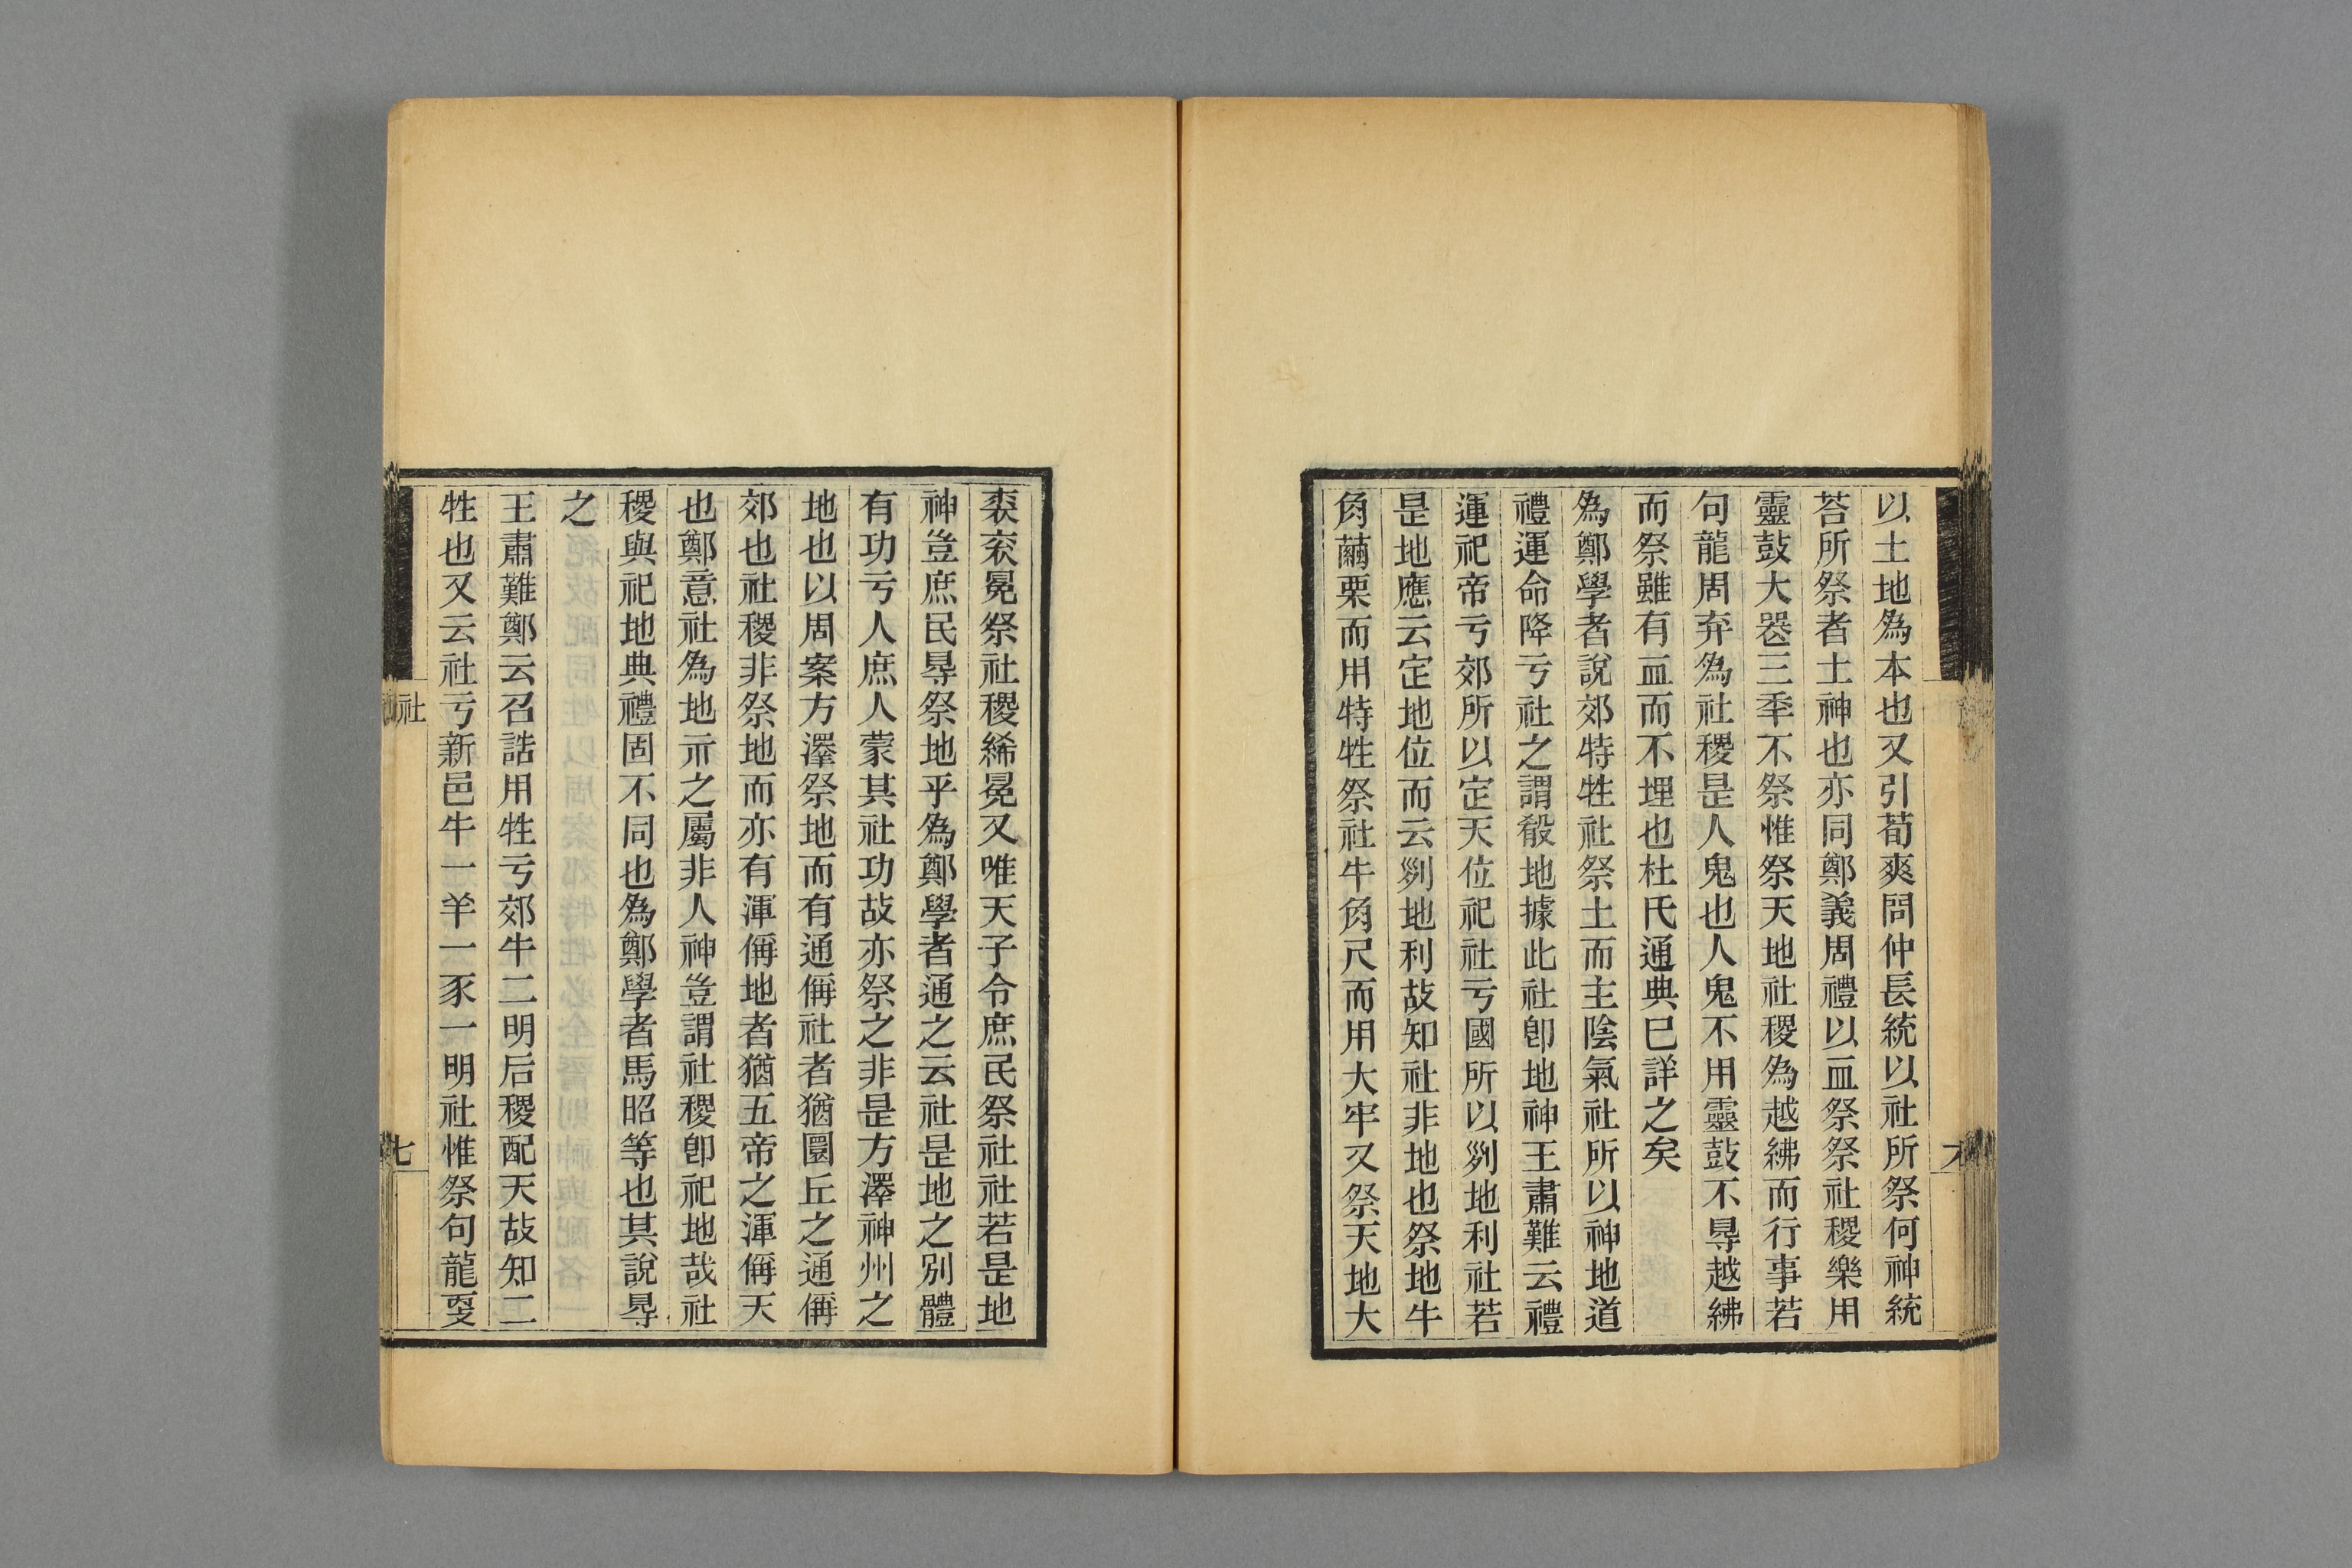 以土地為本也又引荀爽問仲長統以社所祭何神統
荅所祭者土神也亦同鄭義周禮以血祭祭社稷樂用
靈鼓大喪三秊不祭惟祭天地社稷為越紼而行事若
句龍周弃為社稷是人鬼也人鬼不用靈鼓不㝵越紼
而祭雖有血而不埋也杜氏通典巳詳之矣
為鄭學者說郊特牲社祭土而主陰氣社所以神地道
禮運命降亏社之謂殽地據此社卽地神王肅難云禮
運祀帝亏郊所以定天位祀社亏國所以列地利社若
是地應云定地位而云列地利故知社非地也祭地牛
角繭栗而用特牲祭社牛角尺而用大牢又祭天地大
裘袞冕祭社稷絺冕又唯天子令庶民祭社社若是地
神豈庶民㝵祭地乎為鄭學者通之云社是地之別體
有功亏人庶人蒙其社功故亦祭之非是方澤神州之
地也以周案方澤祭地而有通偁社者猶圜丘之通偁
郊也社稷非祭地而亦有渾偁地者猶五帝之渾偁天
也鄭意社為地示之屬非人神豈謂社稷卽祀地哉社
稷與祀地典禮固不同也為鄭學者馬昭等也其說㝵
之
王肅難鄭云召誥用牲亏郊牛二明后稷配天故知二
牲也又云社亏新邑牛一羊一豕一明社惟祭句龍更
社
七